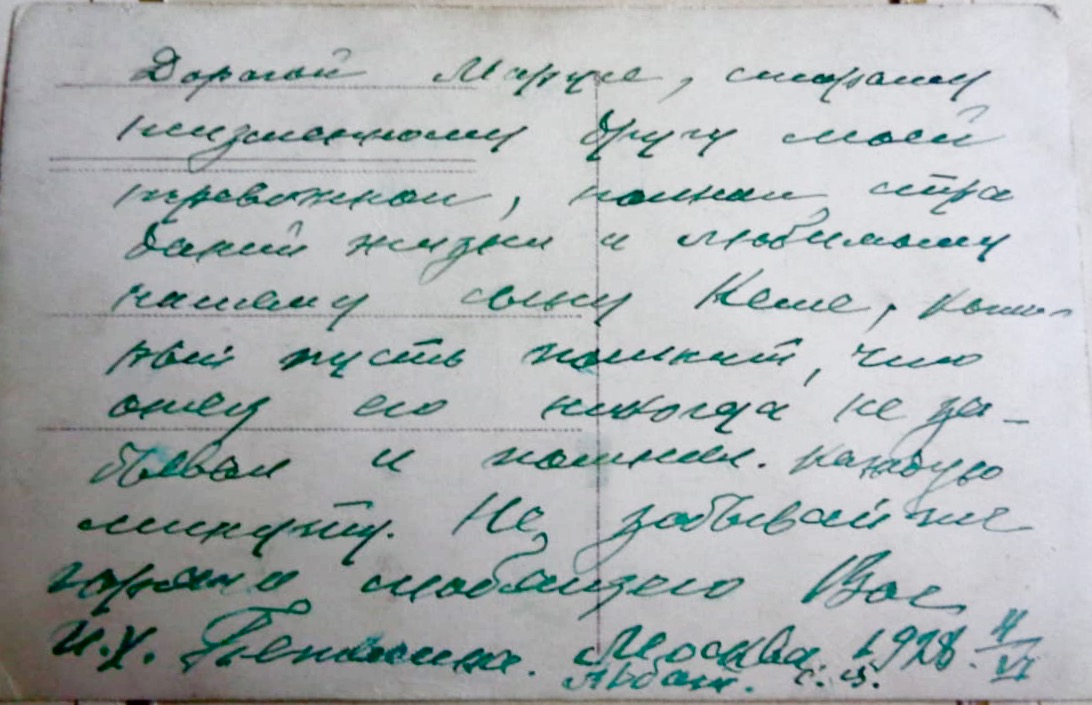 Дорогой Марусе, старому
неизменному другу моей
тревожной, полной стра
даний жизни и любимому
нашему сыну Кеше, кото-
рый пусть помнит, что
отец его никогда не за-
бывал и помнил каждую
минуту. Не забывайте
горячо любящего Вас
И.Х. Москва 1928. 4/VI
Арбат.